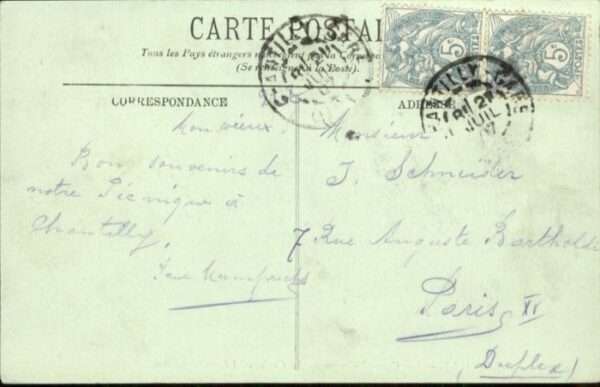 CARTE POSTAL
Tous les Pays étrangers n'
(Se r à la Poste).
CORRESPONDANCE
ADRESSE
5
5
POSTES
CHANTILLY-GARE
JUIL
Mon vieux.
Bons souvenirs de
notre Pic nique à
Chantilly.
Monsieur
J. Schneider
7 Rue Auguste Bartholdi
Paris XV
(Dupleix)